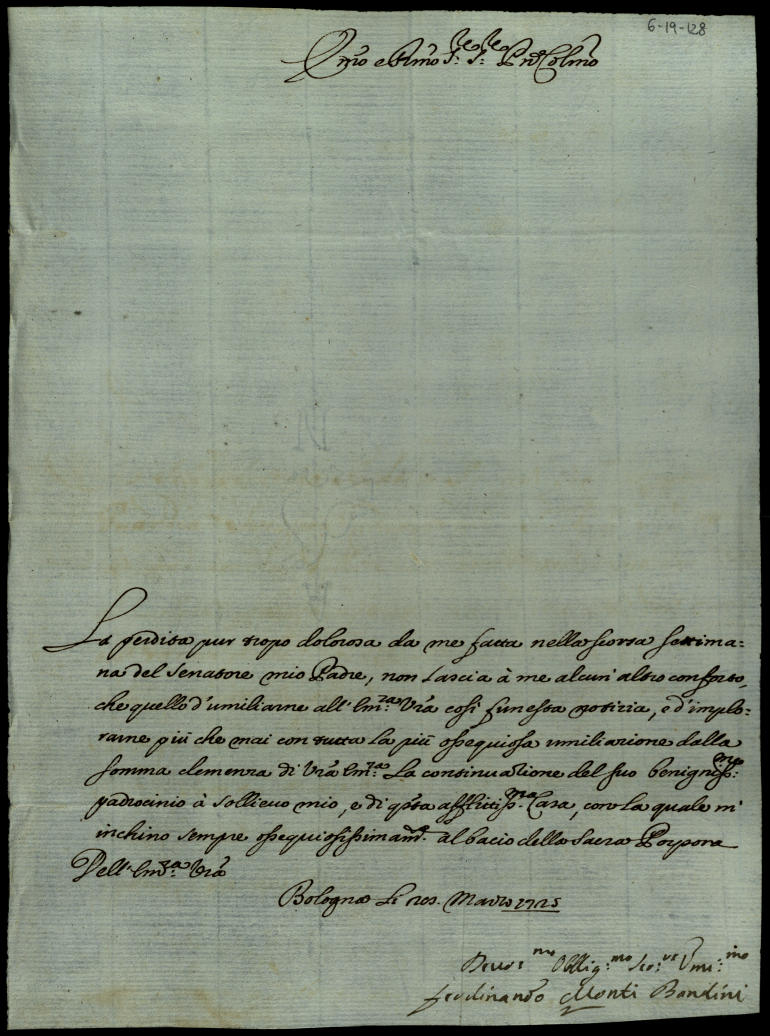 6-19-128
Em̃o e Rm̃o S.re S.re Prõn Colm̃o
La perdita pur tropo dolorosa da me fatta nella scorsa settima:
na del Senatore mio Padre, non lascia à me alcun' altro conforto,
che quello d'umiliarne all' Em.za Vr̃a così funesta notizia, e d'implo:
rarne più che mai con tutta la più ossequiosa umiliazione dalla
somma clemenza di Vr̃a Em.za La continuazione del suo benigniss:mo
padrocinio à sollievo mio, e di q̃sta afflittiss.ma Casa, con la quale m'
inchino sempre ossequiosissimam.te al bacio della Sacra Porpora
Dell' Em.za Vr̃a
Bologna Li Marzo 1725
Devot:mo Obblig:mo Ser:re Umi:mo
Ferdinando Monti Bandini